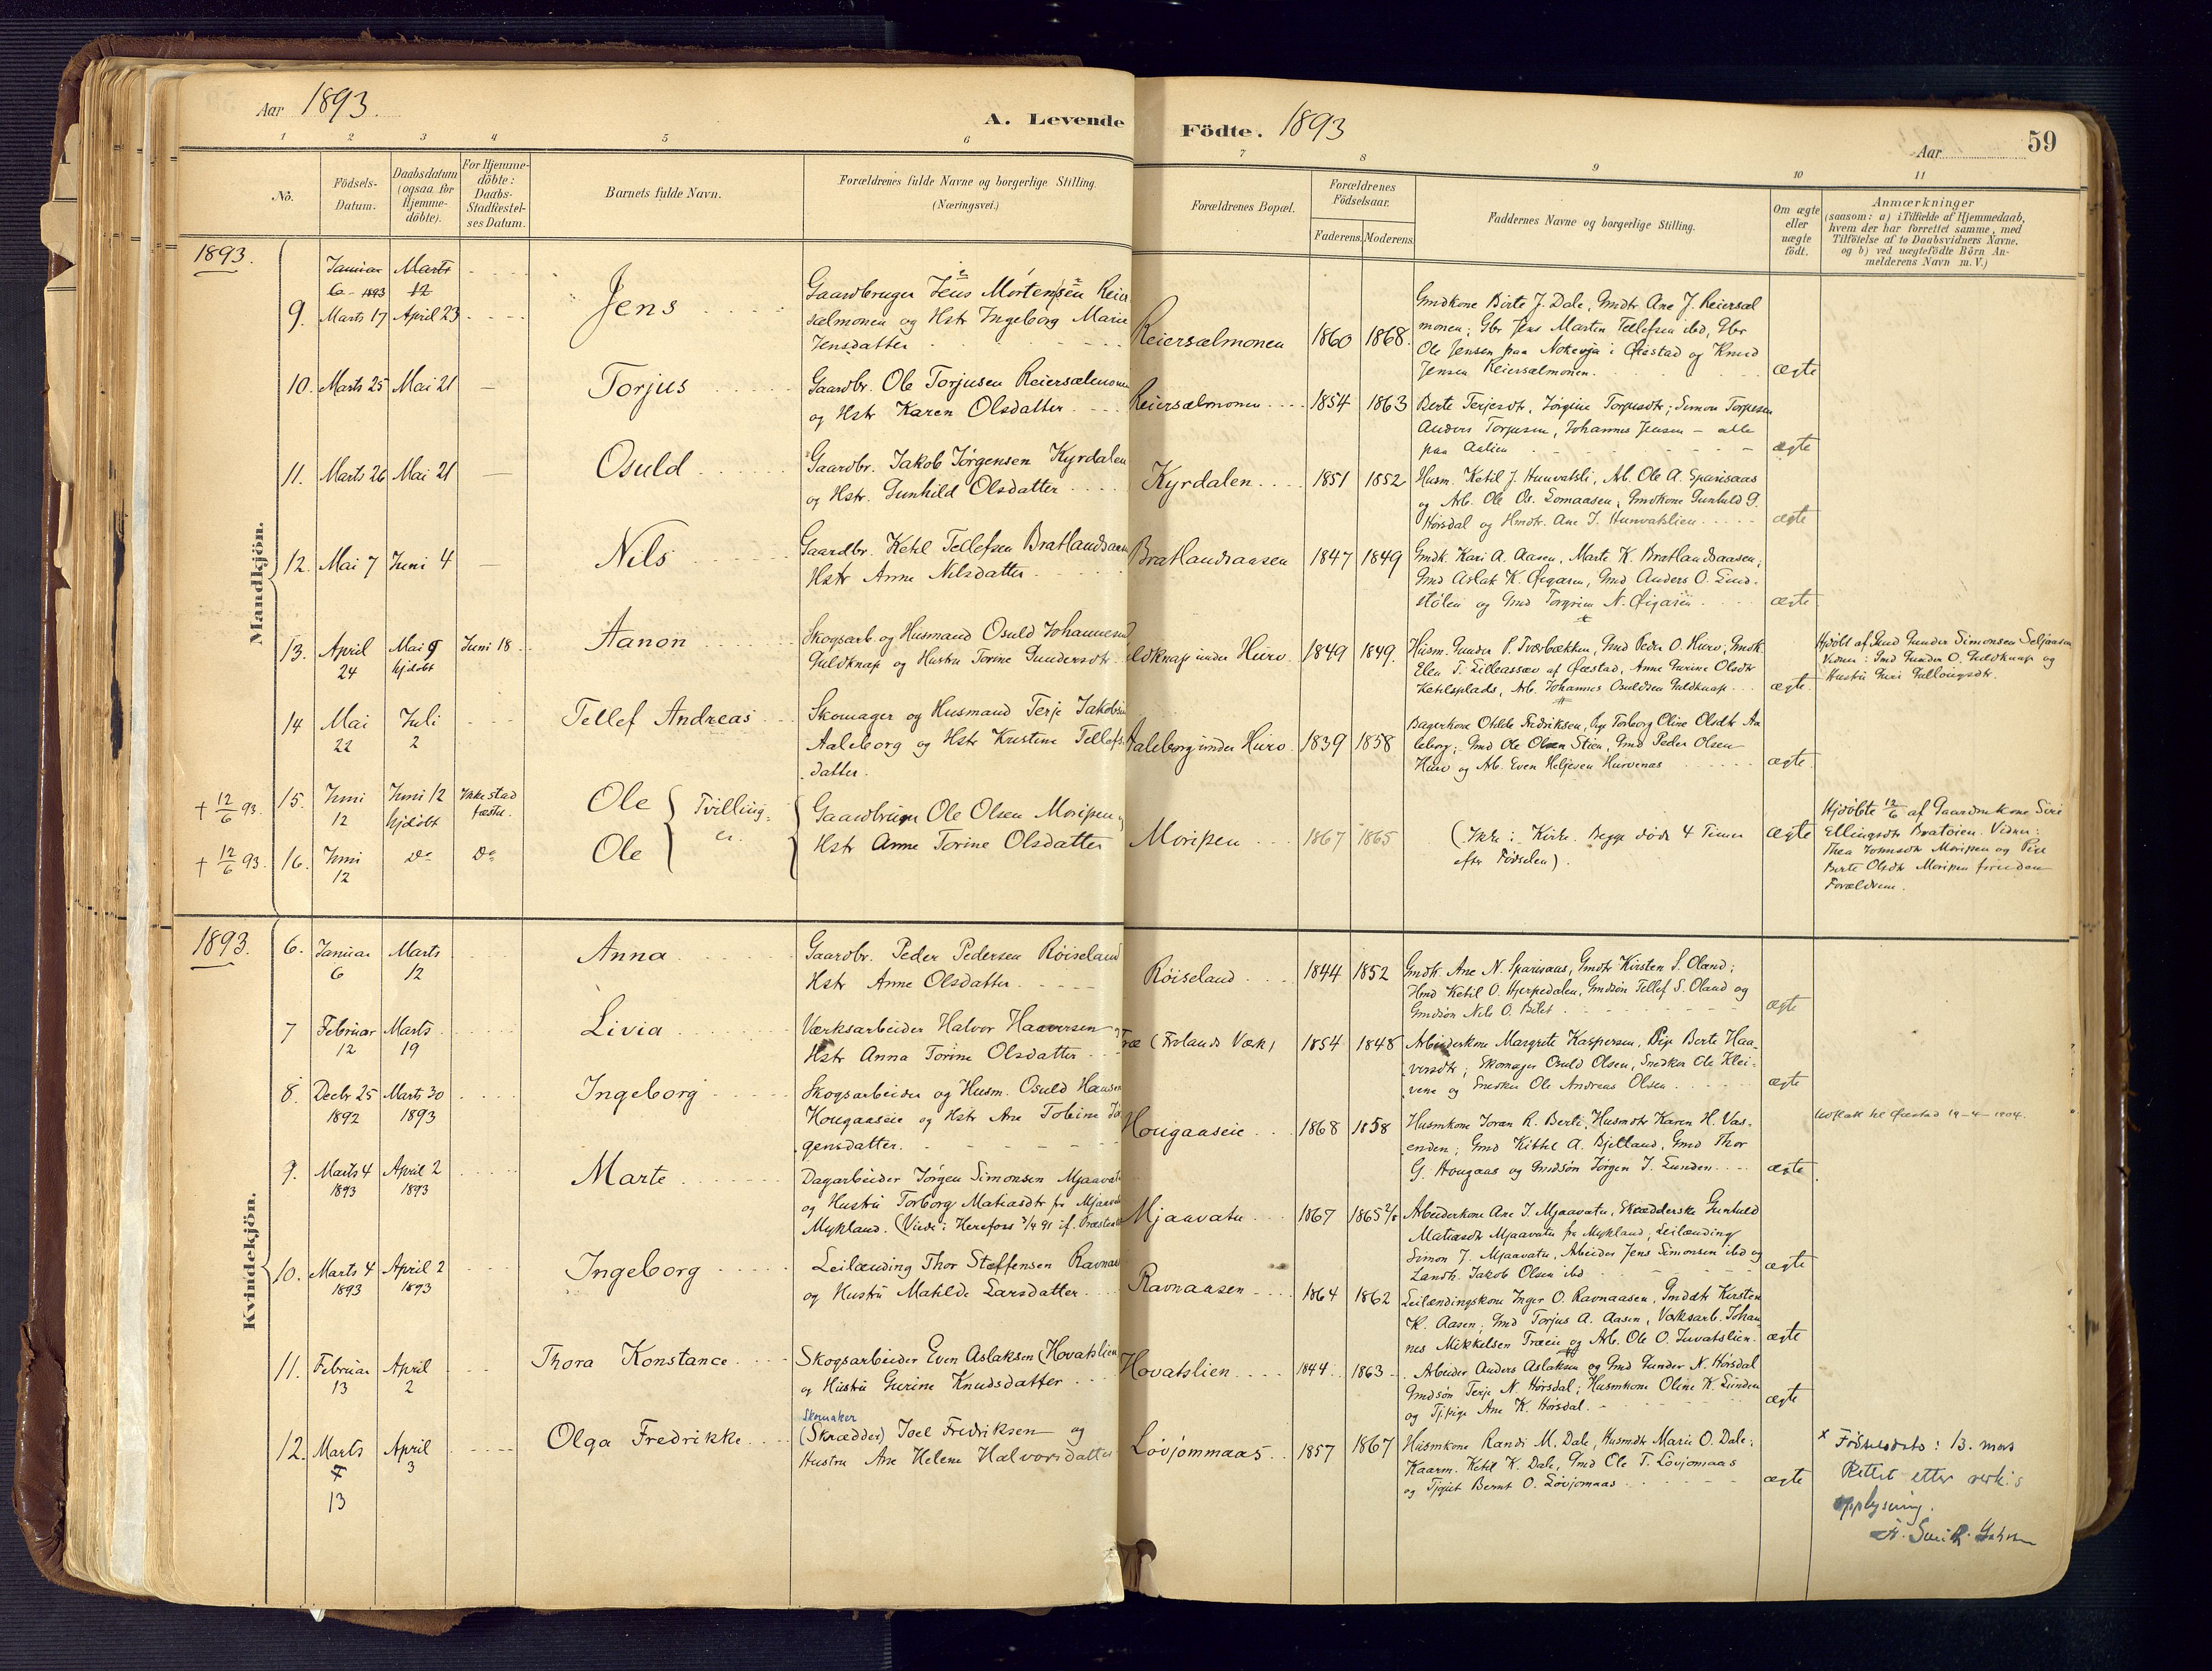 Aar 1893.
A. Levende Födte. 1893
Aar
59
1 2 3 4 5 6 7 8 9 10 11
No.
Födsels-Datum.
Daabsdatum (ogsaa for Hjemme-döbte).
For Hjemme-döbte: Daabs-Stadfæstel-ses Datum.
Barnets fulde Navn.
Forældrenes fulde Navne og borgerlige Stilling.
(Næringsvei.)
Forældrenes Bopæl.
Forældrenes Födselsaar.
Faderens. Moderens.
Faddernes Navne og borgerlige Stilling.
Om ægte eller uægte født.
Anmærkninger
(saasom: a) i Tilfælde af Hjemmedaab,
hvem der har forrettet samme, med
Tilföielse af to Daabsvidners Navne.
og b) ved uægtefödte Börn An-
melderens Navn m.V.)
1893.
Mandkjön.
Januar Marts
6 - 1893 12
9. Marts 17 April 23
Jens
Gaardbruger Jens Mortensen Reier
sælmonen og Hstr Ingeborg Marie
Jensdatter
Reiersælmonen 1860 1868.
Gmdkone Birte J. Dale, Gmdtr Ane J. Reiersæl
monen; Gbr Jens Martin Tellefsen ibd, Gbr
Ole Jensen paa Nokevja i Øiestad og Knud
Jensen Reiersælmonen.
ægte
10. Marts 25 Mai 21 —
Torjus
Gaardbr. Ole Torjusen Reiersælmonen
og Hstr Karen Olsdatter
Reiersælmonen 1854 1863
Berte Terjesdtr, Jørgine Torjusdtr; Simon Torjusen
Anders Torjusen, Johannes Jensen — alle
paa Aslien
ægte
11. Marts 26 Mai 21 —
Osuld
Gaardbr. Jakob Jørgensen Kyrdalen
og Hstr. Gunhild Olsdatter
Kyrdalen 1851 1852
Husm. Ketil J. Hunvatsli, Arb. Ole A. Sparisaas
og Arb. Ole Os. Lomaasen; Gmdkone Gunhild G.
Hørsdal og Hmdtr. Ane J. Hunvatslien
ægte
12. Mai 7 Juni 4 —
Nils
Gaardbr. Ketil Tellefsen Bratlandsaasen
Hstr Anne Nilsdatter
Bratlandsaasen 1847 1849
Gmdk. Kari A. Aasen, Marte K. Bratlandsaasen;
Gmd Aslak K. Øigaren, Gmd Anders O. Lind-
stølen og Gmd Torgrim N. Øigaren
ægte
13. April 24 Mai 9 hjdøbt Juni 18
Aanon
Skogsarb. og Husmand Osuld Johannesen
Guldknap og Hustru Torine Gundersdtr
Guldknap under Hurv. 1849 1849.
Husm. Gunder P. Tvorbækken, Gmd Peder O. Hurv, Gmdk
Elen T. Lilleassæv af Øiestad, Anne Gurine Olsdtr
Ketilsplads, Arb. Johannes Osuldsen Guldknap
ægte.
Hjdøbt af Gmd Gunder Simonsen Seljaasen
Vidner: Gmd Gunder O. Guldknap og
Hustru Guri Gullougsdtr.
14 Mai 22 Juli 2
Tellef Andreas
Skomager og Husmand Terje Jakobsen
Aaleborg og Hstr Kristine Tellefs-
datter.
Aaleborg under Hurv. 1839 1858
Bagerkone Otilde Fredriksen, Pige Torborg Oline Olsdtr Aa
leborg; Gmd Ole Olsen Stien, Gmd Peder Olsen
Hurv og Arb. Even Heljesen Hurvenes
ægte.
† 12/6 93. 15. Juni 12 Juni 12 hjdøbt Ikke stad fæstet.
Ole Tvilling-
† 12/6 93. 16. Juni 12 Do Do
Ole er
Gaardbruger Ole Olsen Moripen og
Hstr Anne Torine Olsdatter
Moripen 1867 1865
(Ikke i Kirke. Begge døde 4 Timer
efter Fødselen).
ægte
Hjdøbte 12/6 af Gaardmkone Siri
Ellingsdtr Bratoien. Vidner:
Thea Johnsdtr Moripen og Pige
Berte Olsdtr Moripen foruden
Forældrene.
1893.
Kvindekjön.
6. Januar 6 Marts 12
Anna
Gaardbr. Peder Pedersen Røiseland
Hstr Anne Olsdatter
Røiseland 1844 1852
Gmdk. Ane N. Sparisaas, Gmdtr Kirsten S. Oland;
Hmd Ketil O. Hjerpedalen, Gmdsøn Tellef S. Oland og
Gmdsøn Nils O. Bilet
ægte
7 Februar 12 Marts 19
Livia
Værksarbeider Halvor Haaversen og
Hstr Anna Torine Olsdatter
Træ (Frolands Værk) 1854 1848
Arbeiderkone Margrete Kaspersen, Pige Berte Haa-
versdtr; Skomager Osuld Olsen, Snedker Ole Klei-
vene og Snedker Ole Andreas Olsen
ægte
8. Decbr 25 1892 Marts 30 1893
Ingeborg
Skogsarbeider og Husm. Osuld Hansen
Hougaaseie og Hstr Ane Tobine Jør
gensdatter.
Hougaaseie 1868 1858
Husmkone Joran R. Berli, Husmdtr Karen H. Vas-
enden; Gmd Kittil A. Bjelland, Gmd Thor
G. Hougaas og Gmdsøn Jørgen J. Lunden
ægte.
Utflatt til Øiestad 19-4-1904.
9. Marts 4 1893 April 2 1893
Marte
Dagarbeider Jørgen Simonsen Mjaavatn
og Hustru Torborg Matiasdtr fra Mjaavatn
Mykland. (Viede i Herefoss 3/4 91 if. Præsteatt
Mjaavatn 1867 1865 2/8
Arbeiderkone Ane J. Mjaavatn, Skrædderske Gunhild
Matiasdtr Mjaavatn fra Mykland; Leilænding
Simon J. Mjaavatn, Arbeider Jens Simonsen ibd og
Landh. Jakob Olsen ibd
ægte
10. Marts 4 1893 April 2 1893
Ingeborg
Leilænding Thor Steffensen Ravnaas
og Hustru Matilde Larsdatter
Ravnaasen 1864 1862
Leilændingskone Inger O. Ravnaasen, Gmddtr Kirsten
K. Aasen; Gmd Torjus A. Aasen, Værksarb. Johan-
nes Mikkelsen Træeie og Arb. Ole O. Juvatslien.
ægte
11. Februar 13 April 2
Thora Konstance
Skogsarbeider Even Aslaksen (Hovatslien
og Hustru Gurine Knudsdatter
Hovatslien 1844 1863
Arbeider Anders Aslaksen og Gmd Gunder N. Hørsdal
Gmdsøn Terje N. Hørsdal; Husmkone Oline K. Lunden
og Tj.pige Ane K. Hørsdal.
ægte
12. Marts 7 13 April 3
Olga Fredrikke
Skomaker
(Skrædder) Joel Fredriksen og
Hustru Ane Helene Halvorsdatter
Løvjommaas 1857 1867
Husmkone Randi M. Dale, Husmdtr Marie O. Dale;
Kaarm. Ketil K. Dale, Gmd Ole T. Løvjomaas
og Tjgut Bernt O. Løvjomaas
ægte
x Fødselsdato: 13. mars
Rettet etter verk.s
opplysning.